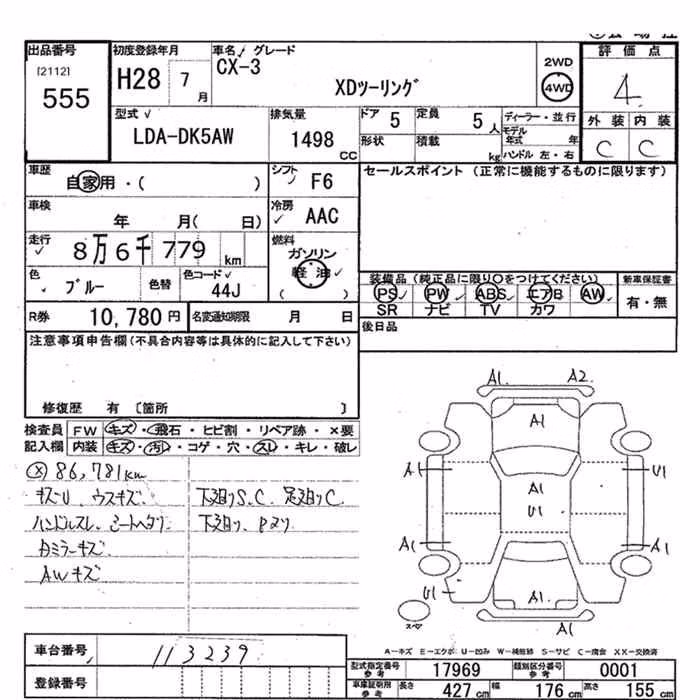 出品番号
[2112]
555
初度登録年月
H28 7 月
車名 グレード
CX-3
XDツーリング
2WD
4WD
評価点
4
外装 内装
C C
型式
LDA-DK5AW
排気量
1498 CC
ドア 5
定員 5 人
形状
積載 kg
ディーラー・並行
モデル年式 年
ハンドル 左・右
車歴
自家用・( )
シフト
F6
セールスポイント (正常に機能するものに限ります)
車検
年 月( 日)
冷房
AAC
走行
8万6千779 km
燃料
ガソリン
軽油
( )
色
ブルー
色替
色コード
44J
装備品 (純正品に限り○をつけてください)
PS PW ABS エアB AW
SR ナビ TV カワ
新車保証書
有・無
R券 10,780 円
名変通知期限 月 日
後日品
注意事項申告欄(不具合内容等は具体的に記入して下さい)
修復歴 有 〔箇所 〕
検査員
記入欄
FW キズ・飛石・ヒビ割・リペア跡・×要
内装 キズ・汚レ・コゲ・穴・スレ・キレ・破レ
86,781km
キズU ウスキズ
ハンドルスレ シートヘタリ
カミラーキズ
AWキズ
下廻りS.C 足廻りC
下廻り
A1 A2
A1
A1 U1
A1
U1
A1 A1
U1 A1
A1
スペア
A-キズ E-エクボ U-凹み W-補修跡 S-サビ C-腐食 XX-交換済
車台番号 113239
登録番号
型式指定番号 参考 17969
類別区分番号 参考 0001
車庫証明用 参考 長さ 427 cm 幅 176 cm 高さ 155 cm